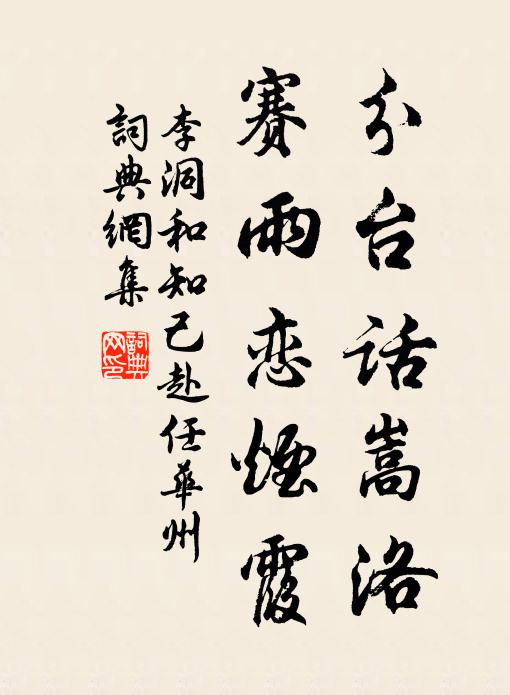 分台话嵩洛
赛雨恋煙霞
李洞和知己赴任華州
詞典網集
詞典网印